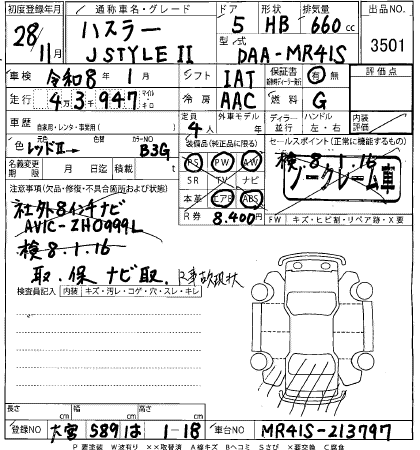 初度登録年月 通称車名・グレード ドア 形状 排気量 出品NO.
28/11月 ハスラー J STYLE II 5 HB 660cc 3501
型式 DAA-MR41S
車検 令和8年 1月 シフト IAT 保証書 有・無 評価点
走行 43,947 マイル キロ 冷房 AAC 燃料 G
車歴 自家用・レンタ・事業用( ) 定員 4人 外車モデル年 ディーラー・並行 ハンドル 左・右 内装評価
色 レッドII 色替 カラーNO. B3G 装備品(純正品に限る) セールスポイント(正常に機能するもの)
名義変更期限 月 日迄 積載 PS PW AW 検8.1.16
注意事項(欠品・修復・不具合箇所および状態) SR TV ナビ クレーム車
社外8インチナビ 本革 エアB ABS
AVIC-ZH0999L R券 8,400円 FW キズ・ヒビ割・リペア跡・X要
検8.1.16
取.保 ナビ取. R事故現状
検査員記入 内装 キズ・汚レ・コゲ・穴・スレ・キレ
長さ cm 幅 cm 高さ cm
登録NO 大宮 589 は 1-18 車台NO MR41S-213797
P 要塗装 W波有り ××取替済 A線キズ Bヘコミ Sさび ×要交換 C腐食